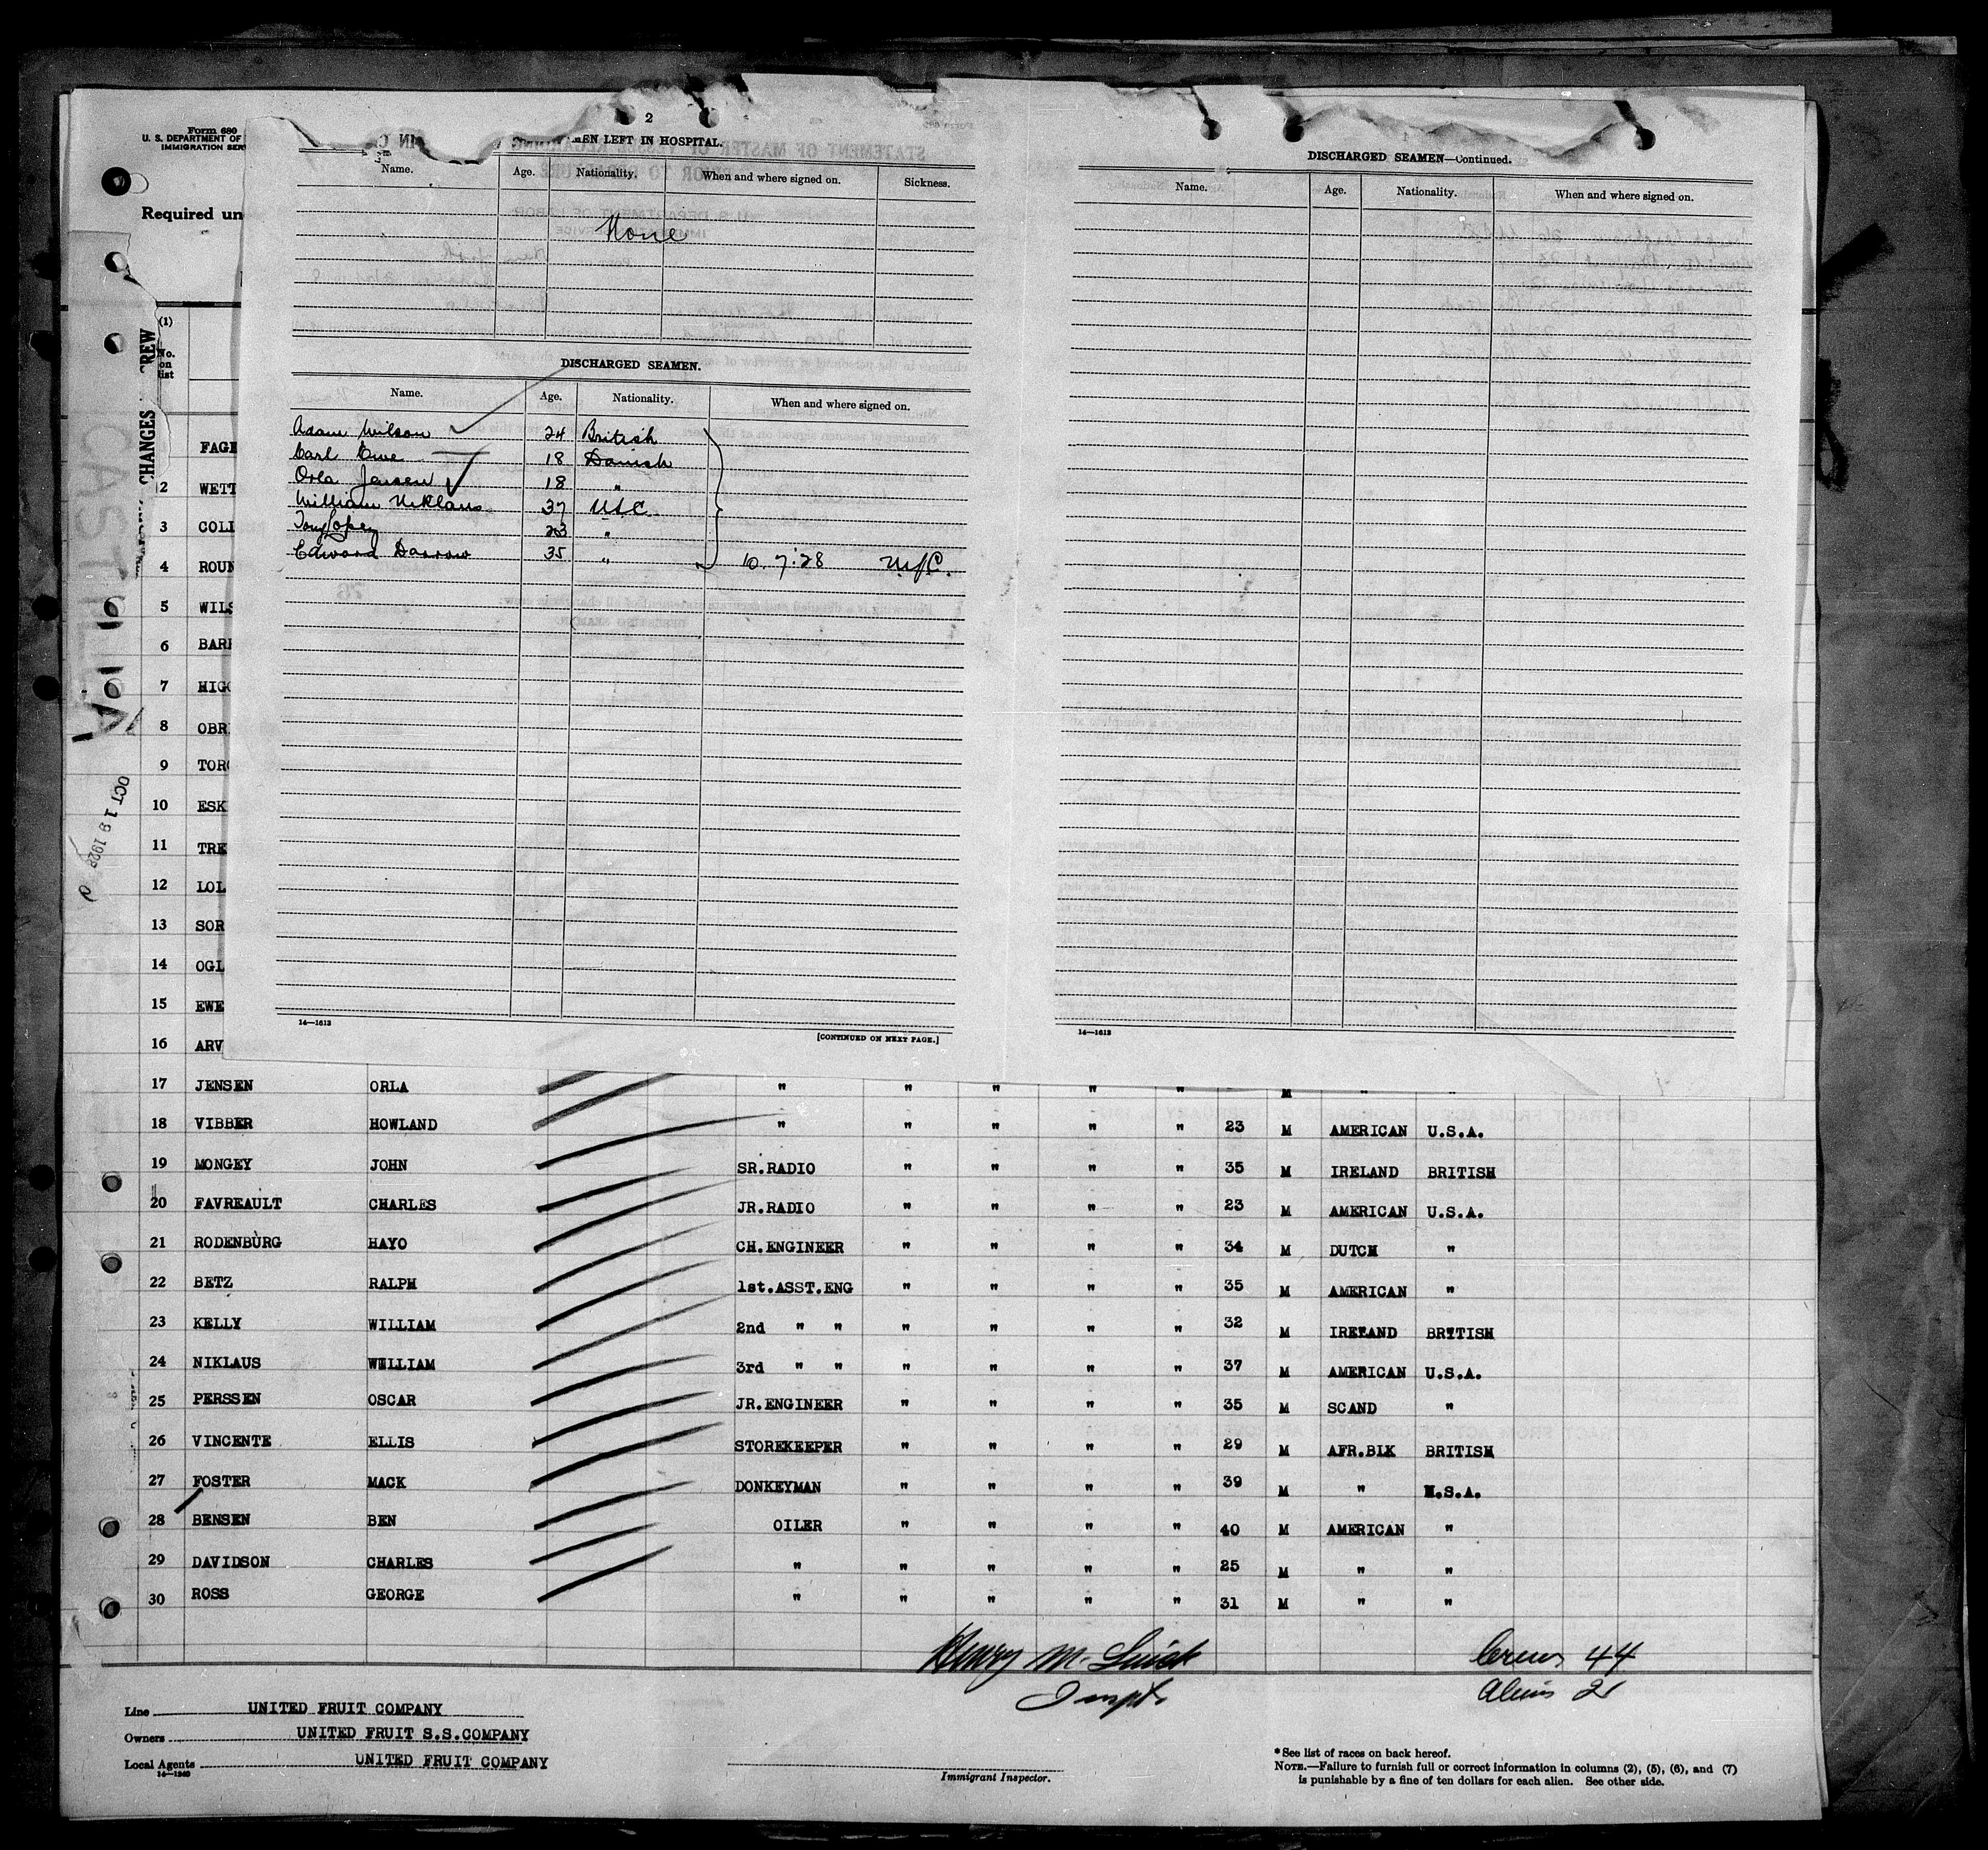 Form 680
U. S. DEPARTMENT OF
IMMIGRATION SER
Required un
2
MEN LEFT IN HOSPITAL.
Name. Age. Nationality. When and where signed on. Sickness.
None
DISCHARGED SEAMEN.
Name. Age. Nationality. When and where signed on.
Adam Wilson 24 British
Carl Ewe 18 Danish
Orla Jensen 18 "
William Niklaus 37 USC
Tony Lopez 23 "
Edward Darrow 35 " 10.7:28 NYC.
14—1613
[CONTINUED ON NEXT PAGE.]
4
DISCHARGED SEAMEN—Continued.
Name. Age. Nationality. When and where signed on.
14—1613
CHANGES CREW
OCT 19 1928
(1)
No.
on
list
FAGE
2 WETT
3 COLL
4 ROUN
5 WILS
6 BARR
7 HIGG
8 OBR
9 TORG
10 ESK
11 TRE
12 LOL
13 SOR
14 OGL
15 EWE
16 ARV
17 JENSEN ORLA " " " " " M "
18 VIBBER HOWLAND " " " " " 23 M AMERICAN U.S.A.
19 MONGEY JOHN SR.RADIO " " " " 35 M IRELAND BRITISH
20 FAVREAULT CHARLES JR.RADIO " " " " 23 M AMERICAN U.S.A.
21 RODENBURG HAYO CH.ENGINEER " " " " 34 M DUTCH "
22 BETZ RALPH 1st.ASST.ENG " " " " 35 M AMERICAN "
23 KELLY WILLIAM 2nd " " " " " " 32 M IRELAND BRITISH
24 NIKLAUS WILLIAM 3rd " " " " " " 37 M AMERICAN U.S.A.
25 PERSSEN OSCAR JR.ENGINEER " " " " 35 M SCAND "
26 VINCENTE ELLIS STOREKEEPER " " " " 29 M AFR.BLK BRITISH
27 FOSTER MACK DONKEYMAN " " " " 39 M " U.S.A.
28 BENSEN BEN OILER " " " " 40 M AMERICAN "
29 DAVIDSON CHARLES " " " " " 25 M " "
30 ROSS GEORGE " " " " " 31 M " "
Henry M.
Inspt.
Crew 44
Aliens 21
Line UNITED FRUIT COMPANY
Owners UNITED FRUIT S.S.COMPANY
Local Agents UNITED FRUIT COMPANY
14—1240
Immigrant Inspector.
*See list of races on back hereof.
NOTE.—Failure to furnish full or correct information in columns (2), (5), (6), and (7)
is punishable by a fine of ten dollars for each alien. See other side.